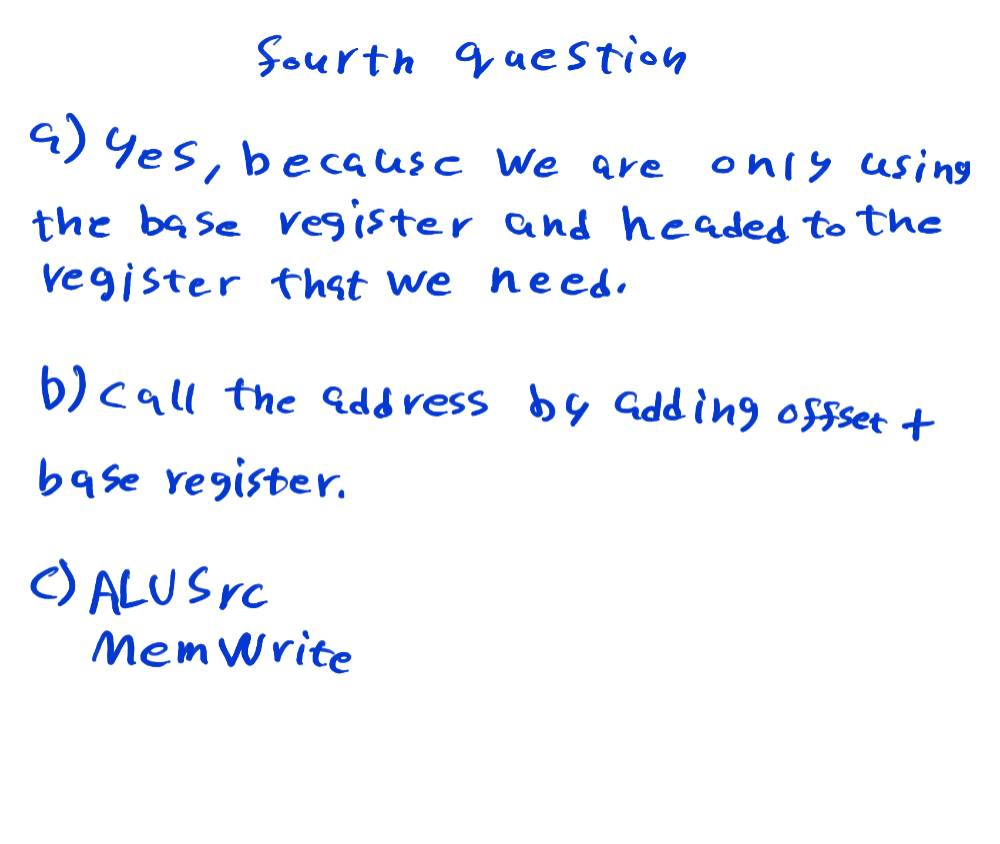 fourth question
a) Yes, because we are only using
the base register and headed to the
register that we need.
b) call the address by adding offset +
base register.
c) ALUSrc
MemWrite